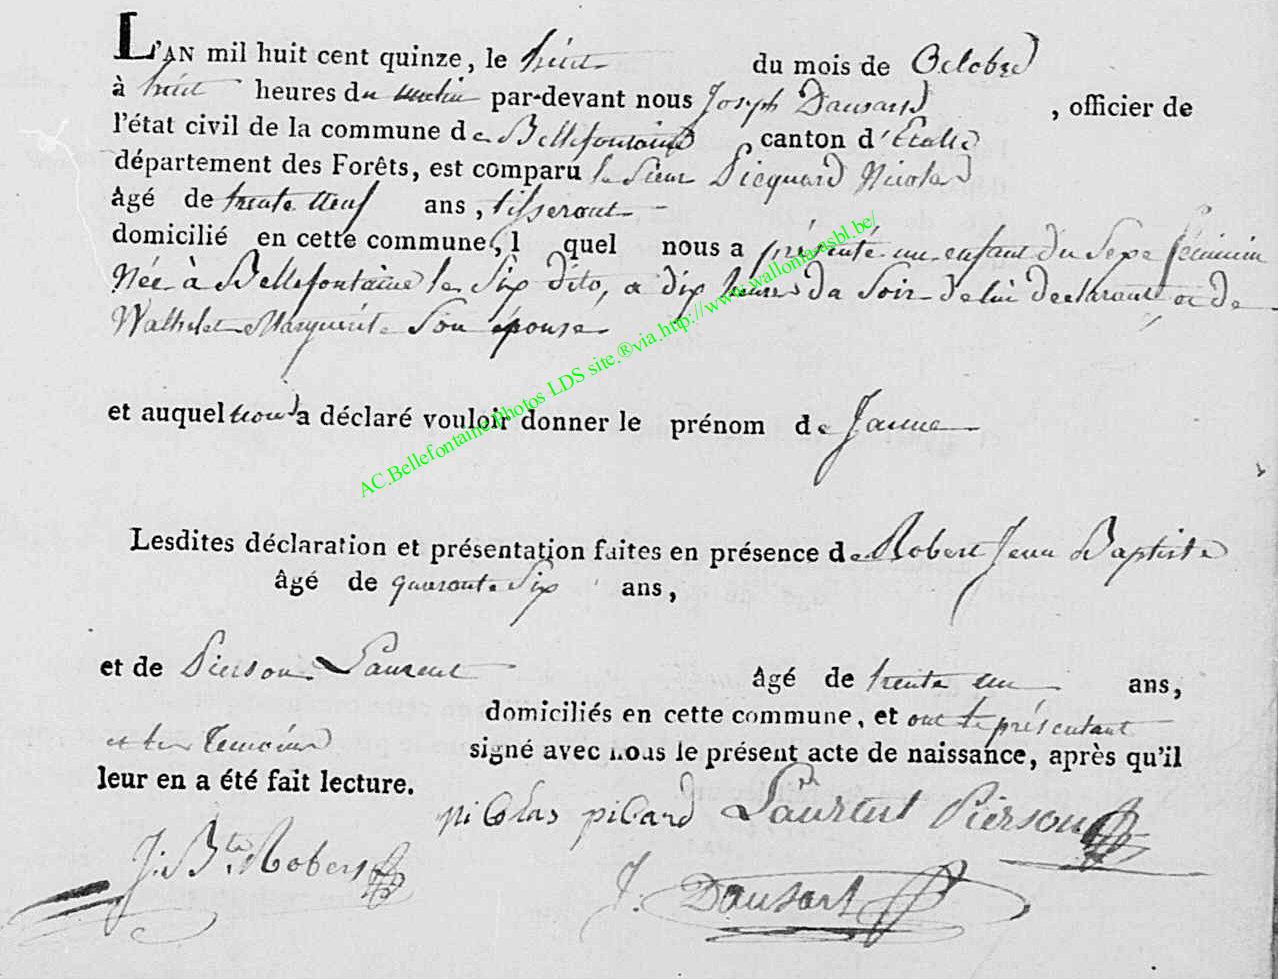 L'AN mil huit cent quinze, le huit du mois de Octobre
à huit heures du matin par-devant nous Joseph Dausard, officier de
l'état civil de la commune de Bellefontaine canton d'Etalle
département des Forêts, est comparu le Sieur Picquard Nicolas
âgé de trente neuf ans, tisserant
domicilié en cette commune, l quel nous a présenté un enfant du Sexe féminin
Née à Bellefontaine le Six dito, a dix heures du Soir de lui déclarant et de
Marguerite Son épouse
et auquel a déclaré vouloir donner le prénom de Janne
AC.Bellefontaine Photos LDS site.®via.http://www.wallonia-asbl.be/
Lesdites déclaration et présentation faites en présence de Robert Jean Baptiste
âgé de quarante Six ans,
et de Pierson Laurent âgé de trente un ans,
domiciliés en cette commune, et ont le présentant
et les Temoins signé avec nous le présent acte de naissance, après qu'il
leur en a été fait lecture.
Nicolas picard Laurent Pierson
J: Bte Robert
J. Dausart